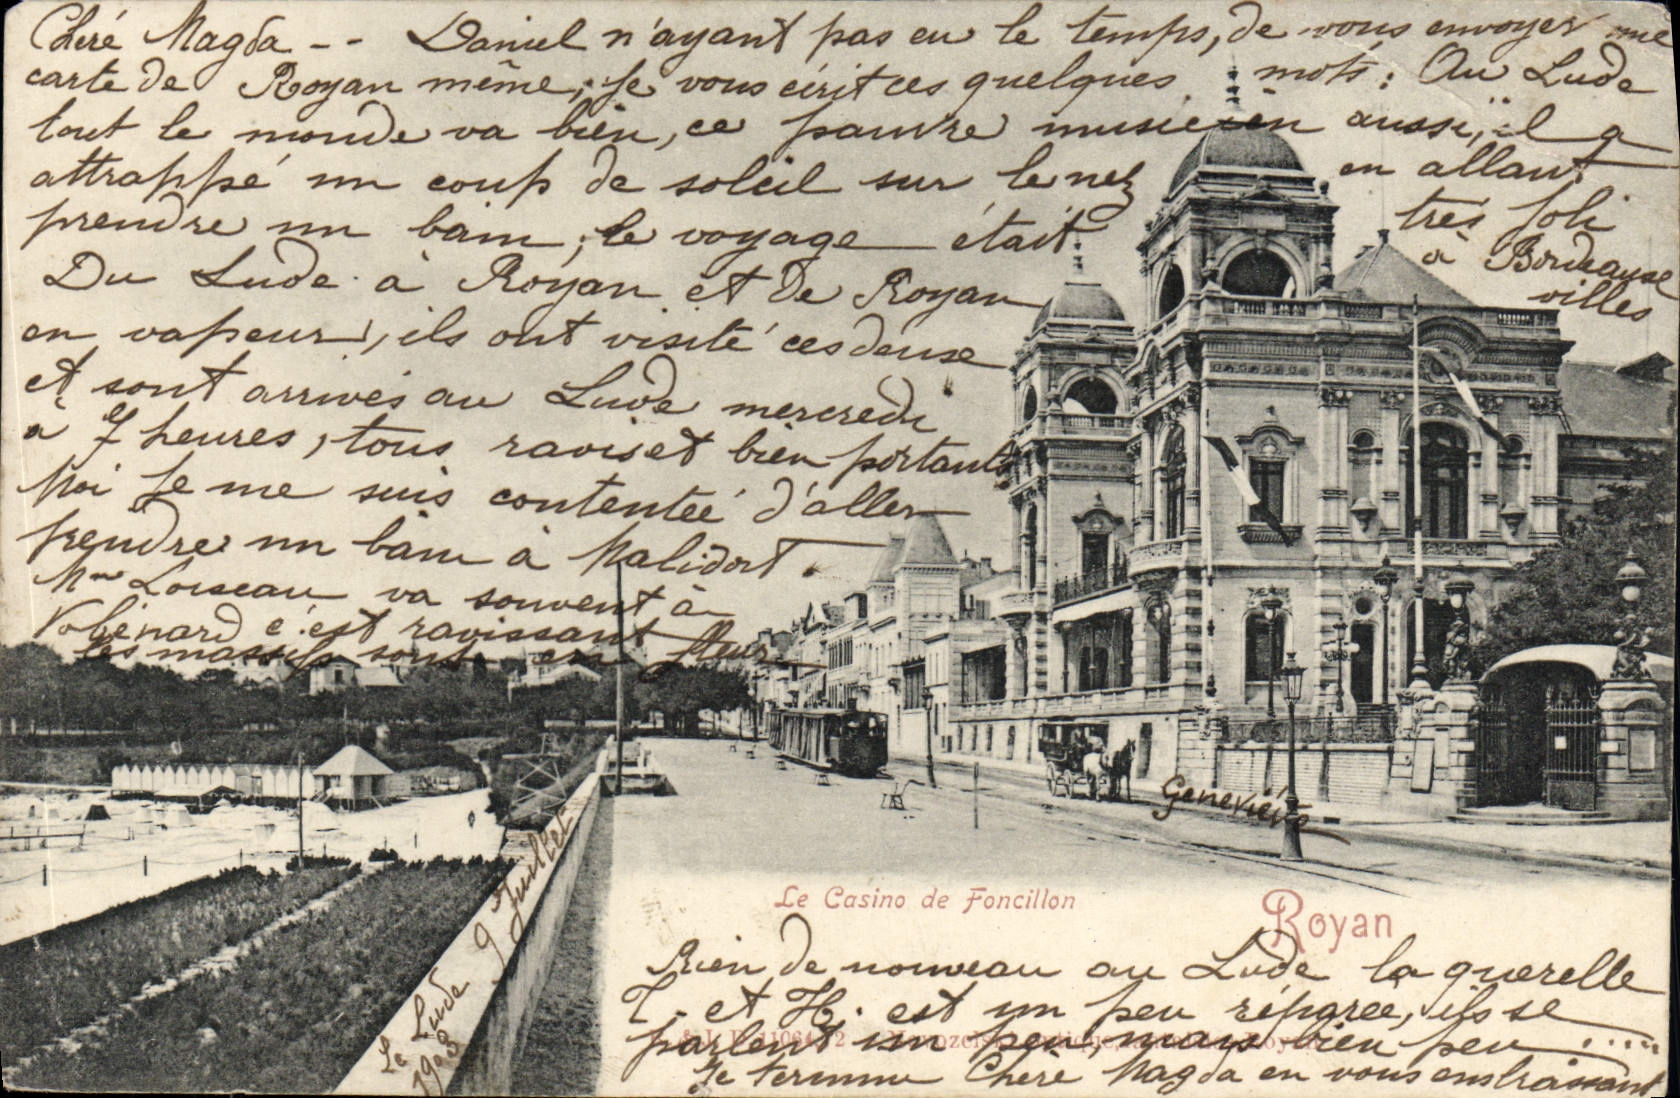 Chéré Magda -- Daniel n'ayant pas eu le temps, de vous envoyer une
carte de Royan même, je vous écrit ces quelques mots : Au Lude
tout le monde va bien, ce pauvre musicien aussi, il a
attrappé un coup de soleil sur le nez en allant
prendre un bain, le voyage était très joli
Du Lude à Royan et de Royan à Bordeause
en vapeur, ils ont visité ces deuse villes
et sont arrivés au Lude mercredi
à 7 heures, tous ravis et bien portants
Moi je me suis contenteé d'aller
prendre un bain à Malidort.
Mme Loiseau va souvent à
c'est ravissant
les massifs sont en fleur
Geneviève
Le Lude 9 Juillet
1903
Le Casino de Foncillon
Royan
Rien de nouveau au Lude la querelle
T. et H. est un peu réparee, ils se
parlent un peu, mais bien peu .....
Je termine Chère Magda en vous embrassant